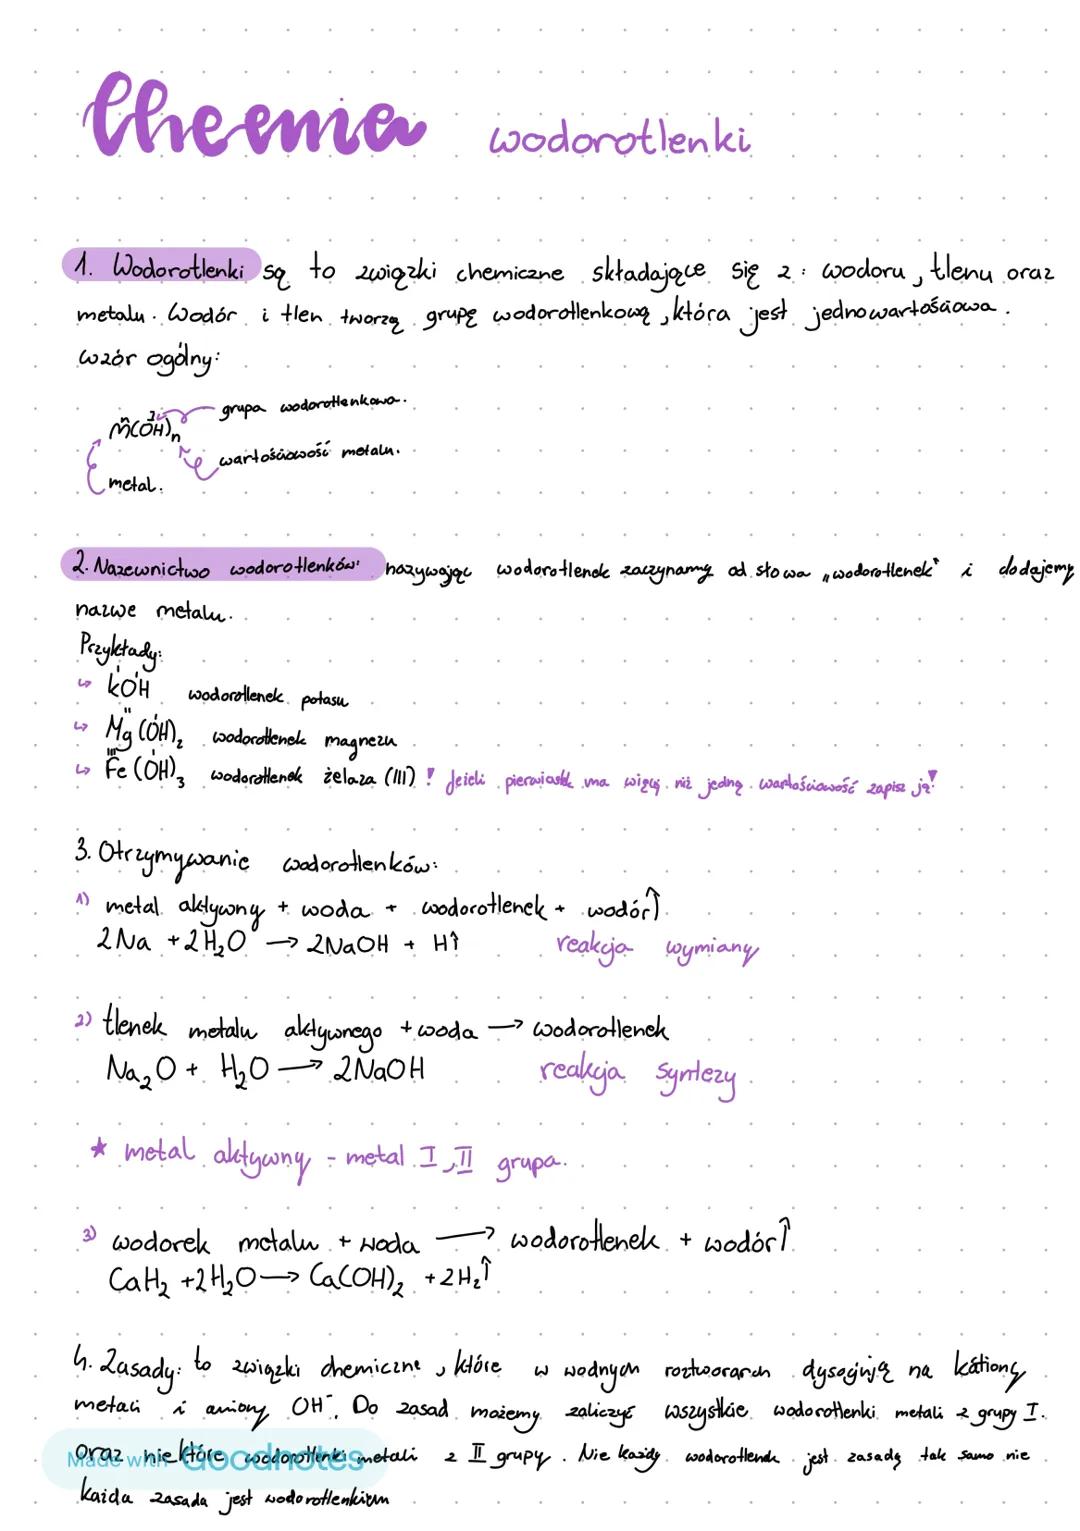 Chemia wodorotlenki
1. Wodorotlenki są to związki chemiczne składające się z: wodoru, tlenu oraz
metalu. Wodór i tlen tworzą grupę wodorotlenkową, która jest jednowartościowa.
wzór ogólny:
grupa wodorotlenkowa.
M(OH)n
wartościowość metalu.
metal.
2. Nazewnictwo wodorotlenków: nazywając wodorotlenek zaczynamy od słowa „wodorotlenek" i dodajemy
nazwe metalu.
Przykłady:
↳ KOH wodorotlenek potasu
↳ Mg(OH)₂ wodorotlenek magnezu
↳ Fe(OH)₃ wodorotlenek żelaza (III) ! Jeżeli pierwiastek ma więcej niż jedną wartościowość zapisz ją!
3. Otrzymywanie wodorotlenków:
1) metal aktywny + woda + wodorotlenek + wodór↑
2Na + 2H₂O → 2NaOH + H↑ reakcja wymiany
2) tlenek metalu aktywnego + woda → wodorotlenek
Na₂O + H₂O → 2NaOH reakcja syntezy
★ metal aktywny - metal I, II grupa.
3) wodorek metalu + woda → wodorotlenek + wodór↑
CaH₂ + 2H₂O → Ca(OH)₂ + 2H₂↑
4. Zasady: to związki chemiczne, które w wodnych roztworach dysocjują na kationy
metali i aniony OH⁻. Do zasad możemy zaliczyć wszystkie wodorotlenki metali z grupy I.
oraz niektóre wodorotlenki metali z II grupy. Nie każdy wodorotlenek jest zasadą tak samo nie
Made with Goodnotes
każda zasada jest wodorotlenkiem